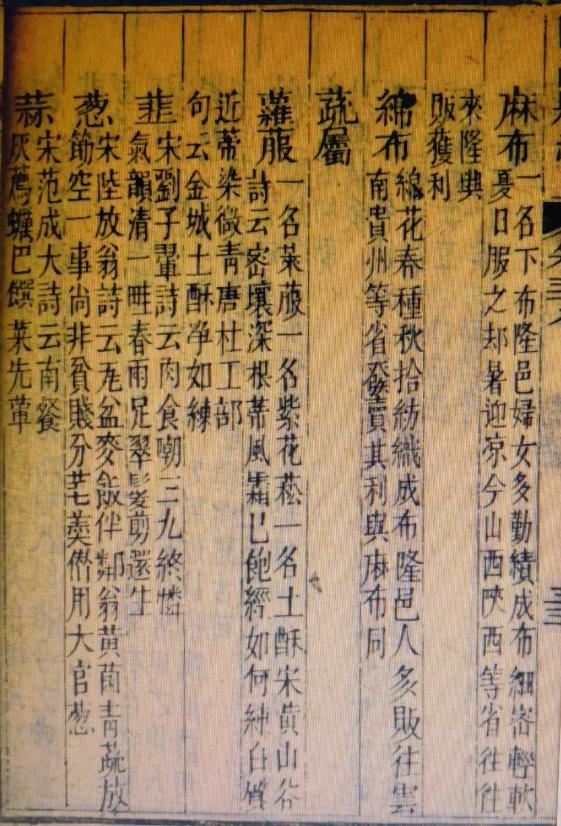 麻布一名下布隆邑婦女多勤績成布細密輕軟
夏日服之却暑迎凉今山西陝西等省往往
來隆興
販獲利
綿布綿花春種秋拾紡織成布隆邑人多販往雲
南貴州等省發賣其利與麻布同
蔬屬
蘿服一名萊菔一名紫花菘一名土酥宋黃山谷
詩云密壤深根蒂風霜已飽經如何純白質
近蒂染微青唐杜工部
句云金城土酥净如練
韭宋劉子翬詩云肉食嘲三九終憐
氣韻清一畦春雨足翠髮剪還生
葱宋陸放翁詩云瓦盆麥飯伴鄰翁黃菌青蔬放
筯空一事尚非貧賤分芼羮僭用大官葱
蒜宋范成大詩云南餐
灰薦蠣巴饌菜先葷